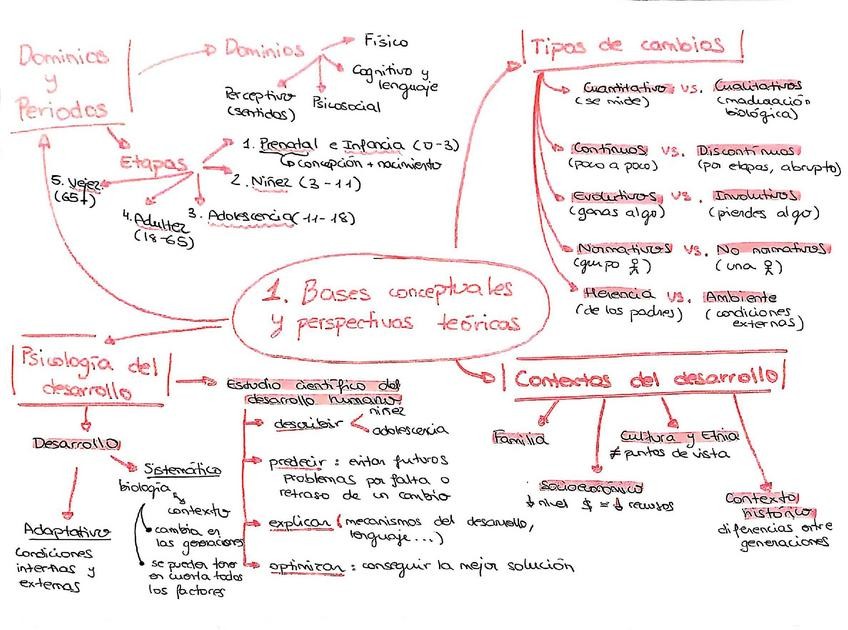 Dominios
y
Periodos
Dominios
Físico
Cognitivo y
lenguaje
Psicosocial
Perceptivo
(sentidos)
Etapas
1. Prenatal e Infancia (0-3)
concepción + nacimiento
2. Niñez (3-11)
3. Adolescencia (11-18)
4. Adultez
(18-65)
5. Vejez
(65+)
Tipos de cambios
Cuantitativos vs. Cualitativos
(se mide) (maduración
biológica)
Continuos vs. Discontinuos
(poco a poco) (por etapas, abrupto)
Evolutivos vs. Involutivos
(ganas algo) (pierdes algo)
Normativos vs. No normativos
(grupo) (una)
Herencia vs. Ambiente
(de los padres) (condiciones
externas)
1. Bases conceptuales
y perspectivas teóricas
Psicología del
desarrollo
Estudio científico del
desarrollo humano
describir
niñez
adolescencia
predecir : evitar futuros
problemas por falta o
retraso de un cambio
explicar (mecanismos del desarrollo,
lenguaje...)
optimizar : conseguir la mejor solución
Desarrollo
Adaptativo
condiciones
internas y
externas
Sistemático
biología
contexto
cambia en
las generaciones
se pueden tener
en cuenta todos
los factores
Contextos del desarrollo
Familia
Socioeconómico
↓ nivel $ = ↓ recursos
Cultura y Etnia
≠ puntos de vista
Contexto
histórico
diferencias entre
generaciones